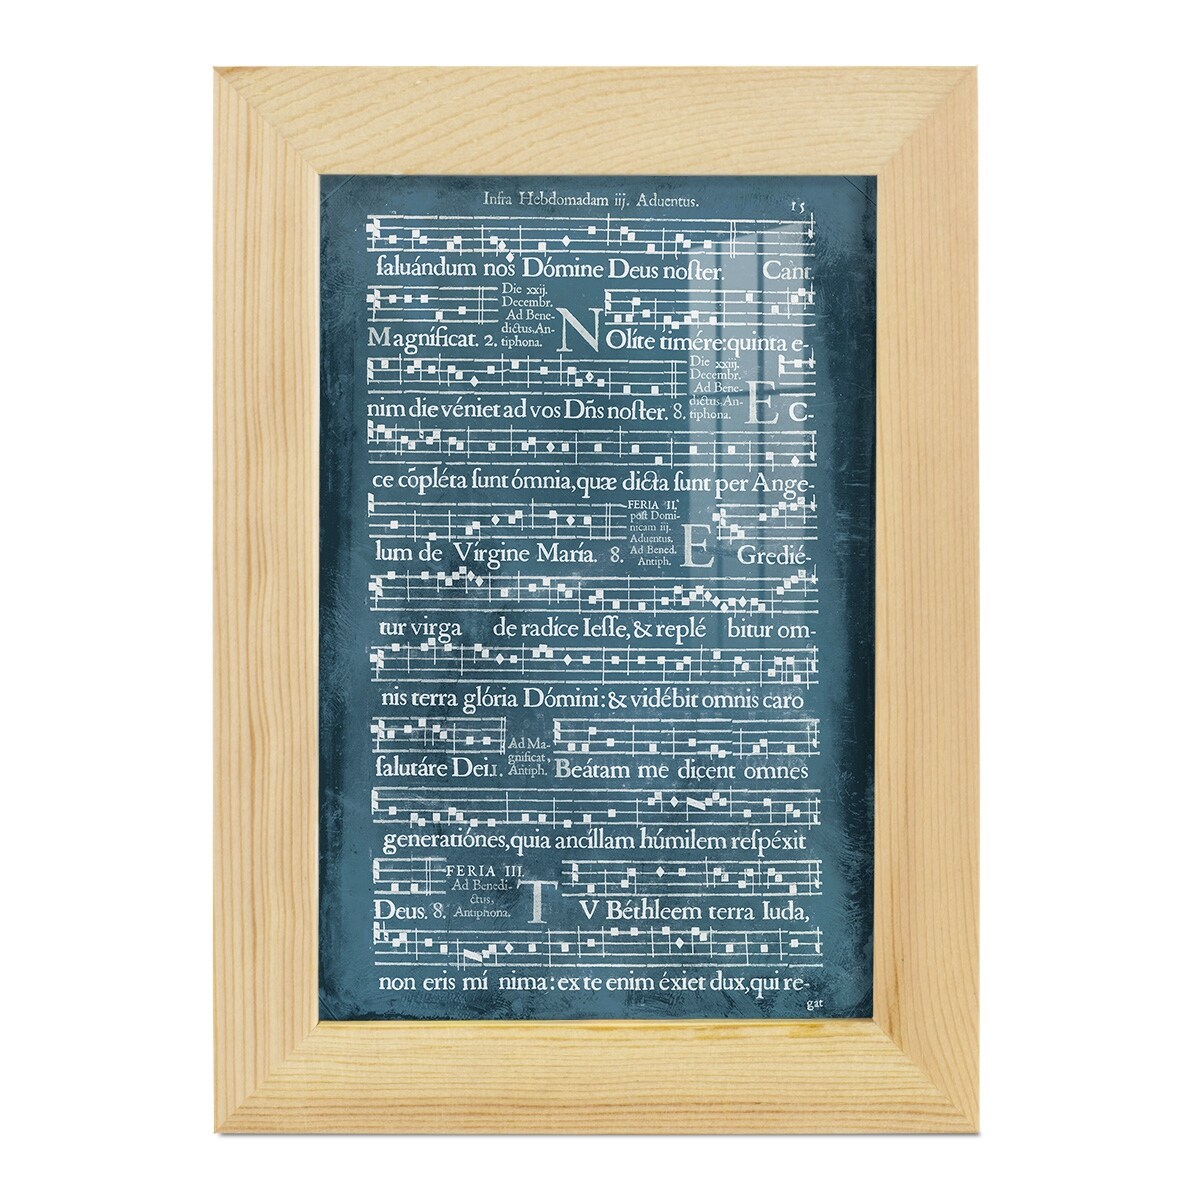 Infra Hebdomadam iij. Aduentus. 15
ſaluándum nos Dómine Deus noſter. Cant.
Die xxij.
Decembr.
Ad Bene-
dictus. An-
tiphona.
Magníficat. 2. NOlíte timére: quinta e-
Die xxiij.
Decembr.
Ad Bene-
dictus. An-
tiphona.
nim die véniet ad vos Dñs noſter. 8. EC-
ce cōpléta ſunt ómnia, quæ dicta ſunt per Ange-
FERIA II.
poſt Domi-
nicam iij.
Aduentus.
Ad Bened.
Antiph.
lum de Vírgine María. 8. EGredié-
tur virga de radíce Ieſſe, & replé bitur om-
nis terra glória Dómini: & vidébit omnis caro
Ad Ma-
gnificat,
Antiph.
ſalutáre Dei. 1. Beátam me dicent omnes
generatiónes, quia ancíllam húmilem reſpéxit
FERIA III.
Ad Benedi-
ctus,
Antiphona.
Deus. 8. TV Béthleem terra Iuda,
non eris mí nima: ex te enim éxiet dux, qui re-
gat